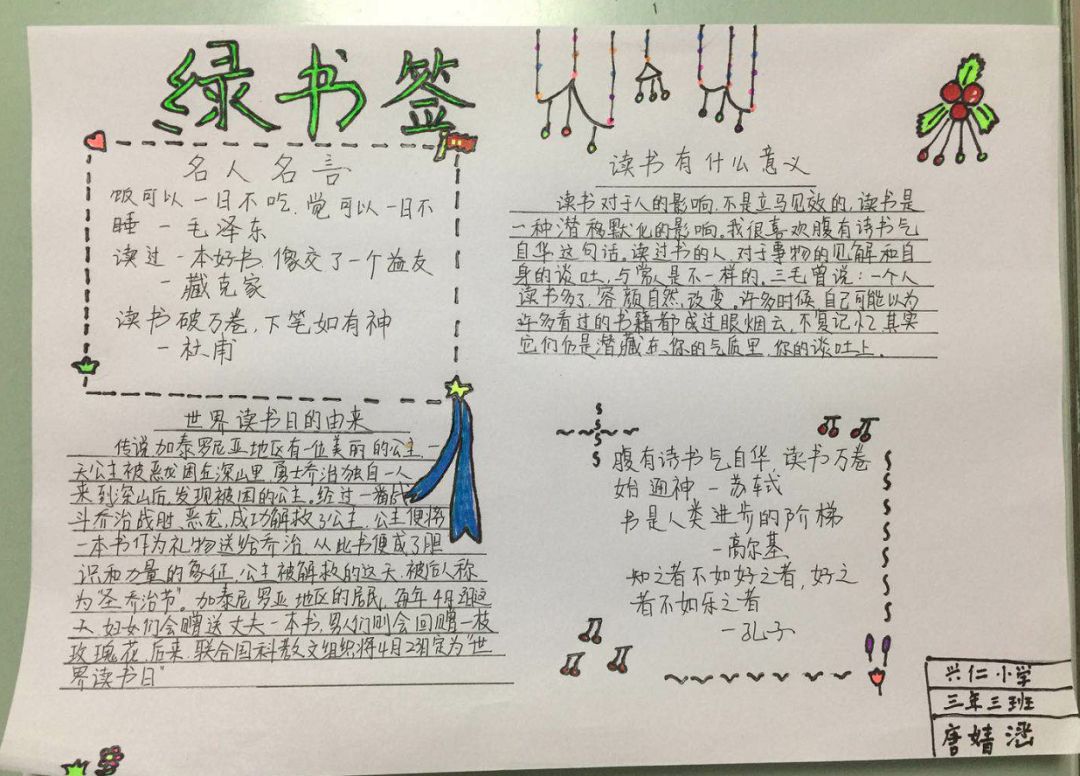 绿书签
名人名言
饭可以一日不吃,觉可以一日不
睡 - 毛泽东
读过一本好书 像交了一个益友
- 藏克家
读书破万卷,下笔如有神
- 杜甫
世界读书日的由来
传说加泰罗尼亚地区有一位美丽的公主,一
天公主被恶龙困在深山里,勇士乔治独自一人
来到深山后,发现被困的公主。经过一番战
斗乔治战胜恶龙,成功解救了公主,公主便将
一本书作为礼物送给乔治 从此书便成了胆
识和力量的象征,公主被解救的这天,被后人称
为"圣乔治节"。加泰尼罗亚地区的居民,每年4月到这
天 妇女们会赠送丈夫一本书,男人们则会回赠一枝
玫瑰花,后来,联合国科教文组织将4月23日定为"世
界读书日"
读书有什么意义
读书对于人的影响,不是立马见效的,读书是
一种潜移默化的影响。我很喜欢腹有诗书气
自华这句话。读过书的人,对于事物的见解和自
身的谈吐,与常人是不一样的。三毛曾说:一个人
读书多了,容颜自然,改变。许多时候,自己可能以为
许多看过的书籍都成过眼烟云,不复记忆,其实
它们仍是潜藏在,你的气质里,你的谈吐上。
腹有诗书气自华,读书万卷
始通神 - 苏轼
书是人类进步的阶梯
- 高尔基
知之者不如好之者,好之
者不如乐之者
- 孔子
兴仁小学
三年三班
唐婧涵